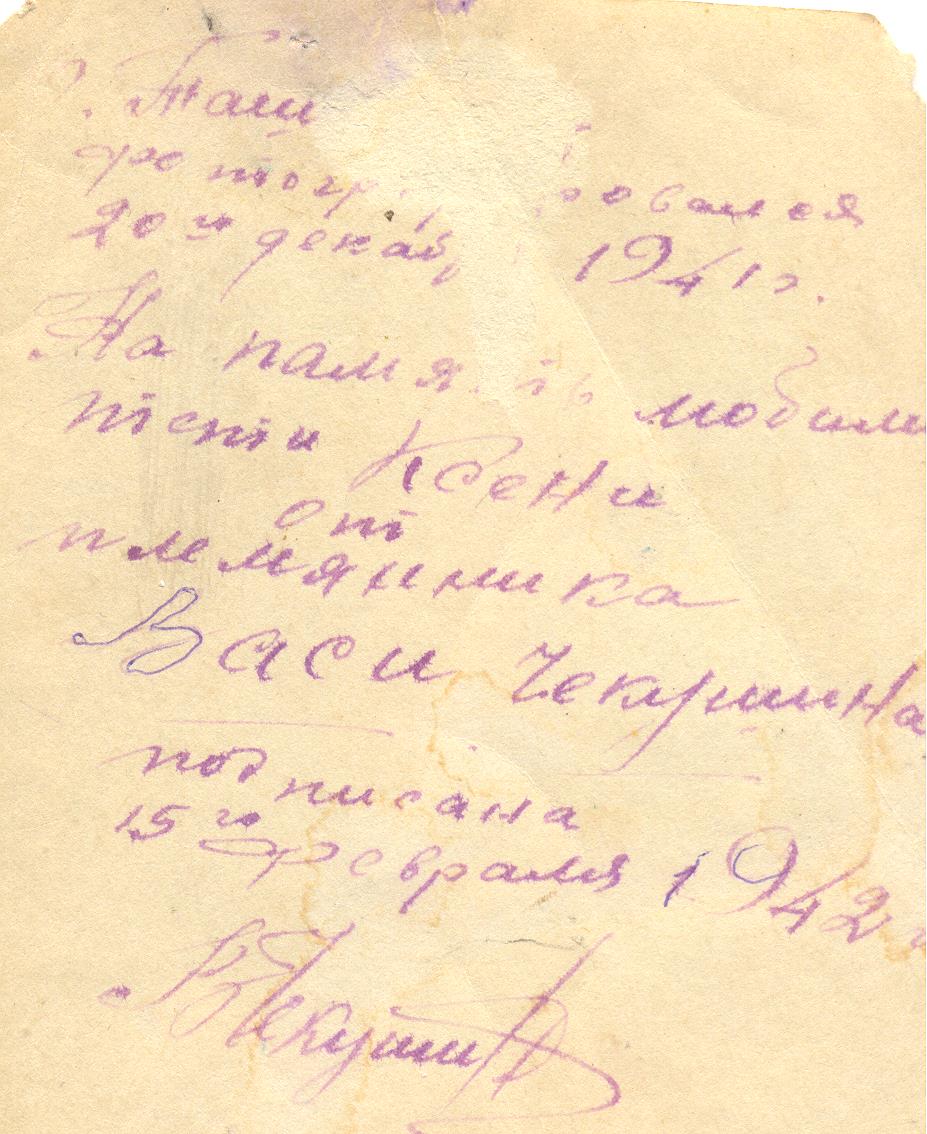 г. Таш
фотогр ровался
20го декаб 1941 г.
На память любим
тёти Ксени
от
племянника
Васи Чекушина
подписана
15го февраля 1942 г
ВЧекушин